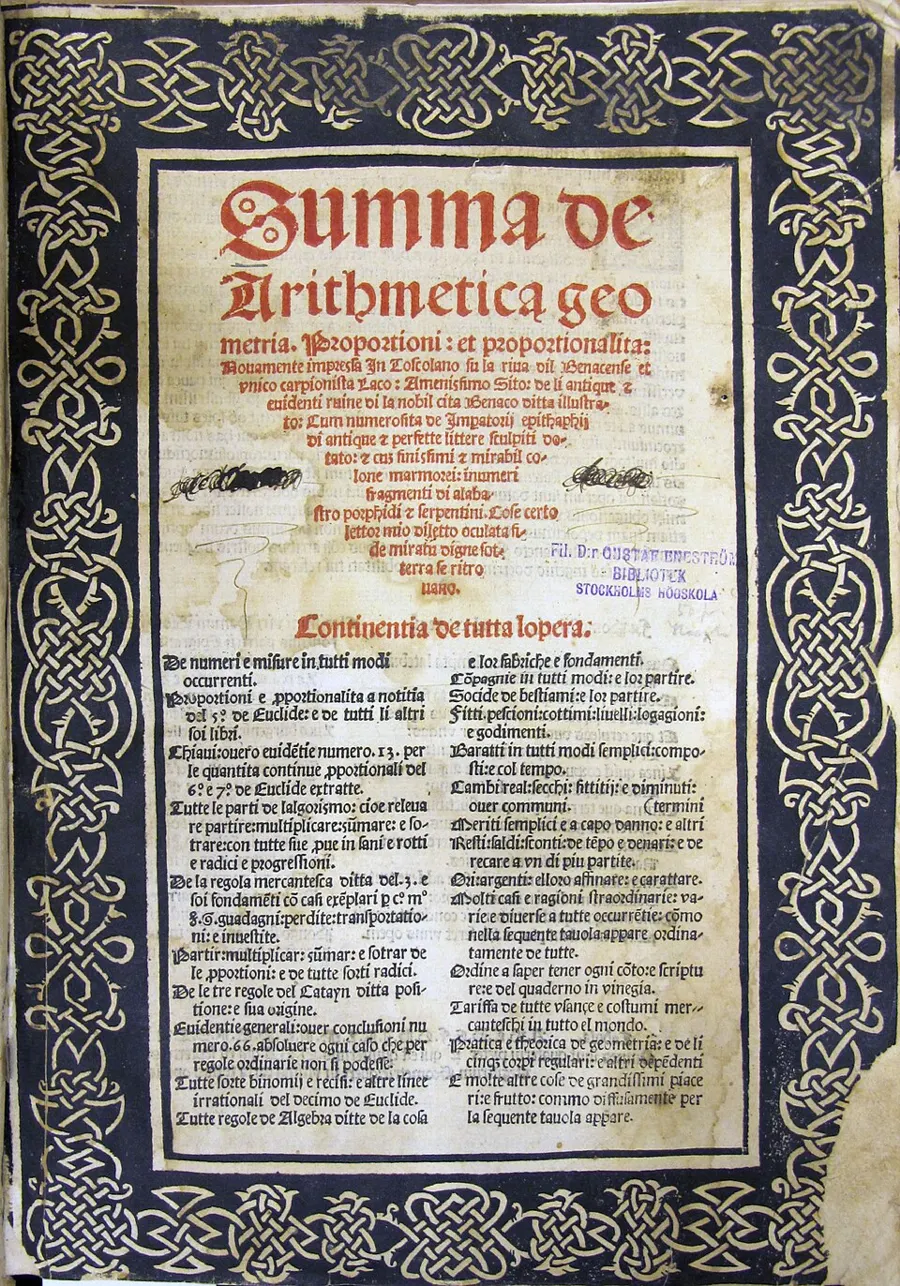 Summa de
Arithmetica geo
metria. Proportioni: et proportionalita:
Nouamente impressa In Toscolano su la riua dil Benacense et
vnico carpionista Laco: Amenissimo Sito: de li antique ⁊
euidenti ruine di la nobil cita Benaco ditta illustra-
to: Cum numerosita de Impatorij epithaphij
di antique ⁊ perfette littere sculpiti do-
tato: ⁊ cus finissimi ⁊ mirabil co-
lone marmorei: inumeri
fragmenti di alaba-
stro porphidi ⁊ serpentini. Cose certo
lettor mio diletto oculata fi-
de miratu digne sot-
terra se ritro
uano.
Fil. D:r GUSTAF ENESTRÖMS
BIBLIOTEK
STOCKHOLMS HÖGSKOLA
Continentia de tutta lopera:
De numeri e misure in tutti modi
occurrenti.
Proportioni e ꝓportionalita a notitia
del 5º de Euclide: e de tutti li altri
soi libri.
Chiaui: ouero euidētie numero .13. per
le quantita continue ꝓportionali del
6º e 7º de Euclide extratte.
Tutte le parti de lalgorismo: cioe releua
re partire: multiplicare: sūmare: e so-
trare: con tutte sue ꝓue in sani e rotti
e radici e progressioni.
De la regola mercantesca ditta del .3. e
soi fondamēti cō casi exēplari ꝑ cº mº
§.G. guadagni: perdite: transportatio-
ni: e inuestite.
Partir: multiplicar: sūmar: e sotrar de
le ꝓportioni: e de tutte sorti radici.
De le tre regole del Catayn ditta posi-
tione: e sua origine.
Euidentie generali: ouer conclusioni nu
mero .66. absoluere ogni caso che per
regole ordinarie non si podesse.
Tutte sorte binomij e recisi: e altre linee
irrationali del decimo de Euclide.
Tutte regole de Algebra ditte de la cosa
e lor fabriche e fondamenti.
Cōpagnie in tutti modi: e lor partire.
Socide de bestiami: e lor partire.
Fitti: pescioni: cottimi: liuelli: logagioni:
e godimenti.
Baratti in tutti modi semplici: compo-
sti: e col tempo.
Cambi real: secchi: fittitij: e diminuti:
ouer communi. (termini
Meriti semplici e a capo danno: e altri
Resti: saldi: sconti: de tēpo e denari: e de
recare a vn di piu partite.
Ori: argenti: e lloro affinare: e carattare.
Molti casi e ragioni straordinarie: va-
rie e diuerse a tutte occurrētie: cōmo
nella sequente tauola appare ordina-
tamente de tutte.
Ordine a saper tener ogni cōto: e scriptu
re: e del quaderno in vinegia.
Tariffa de tutte vsançe e costumi mer-
canteschi in tutto el mondo.
Pratica e theorica de geometria: e de li
cinqꝫ corpi regulari: e altri depēdenti
E molte altre cose de grandissimi piace
ri: e frutto: commo diffusamente per
la sequente tauola appare.